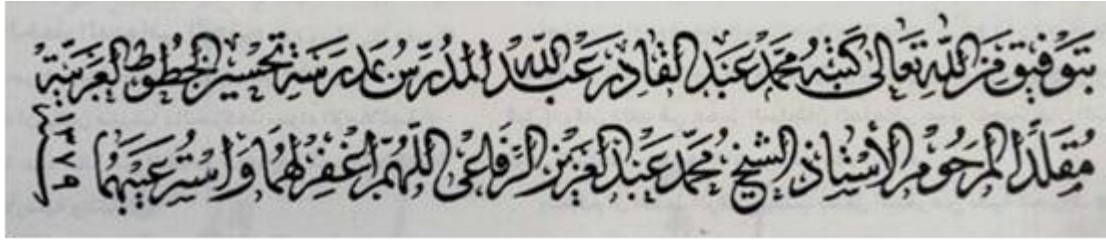 بتوفيق من الله تعالى كتبه محمد عبد القادر عبد الله المدرس بمدرسة تحسين الخطوط العربية
مقلدا المرحوم الأستاذ الشيخ محمد عبد العزيز الرفاعي اللهم اغفر لهما واستر عيبهما ١٣٧٩